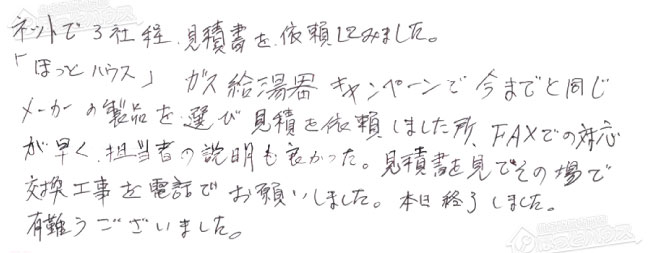 ネットで3社程、見積書を依頼してみました。
「ほっとハウス」 ガス給湯器キャンペーンで今までと同じ
メーカーの製品を選び見積を依頼しました所、FAXでの対応
が早く、担当者の説明も良かった。見積書を見てその場で
交換工事を電話でお願いしました。本日終了しました。
有難うございました。